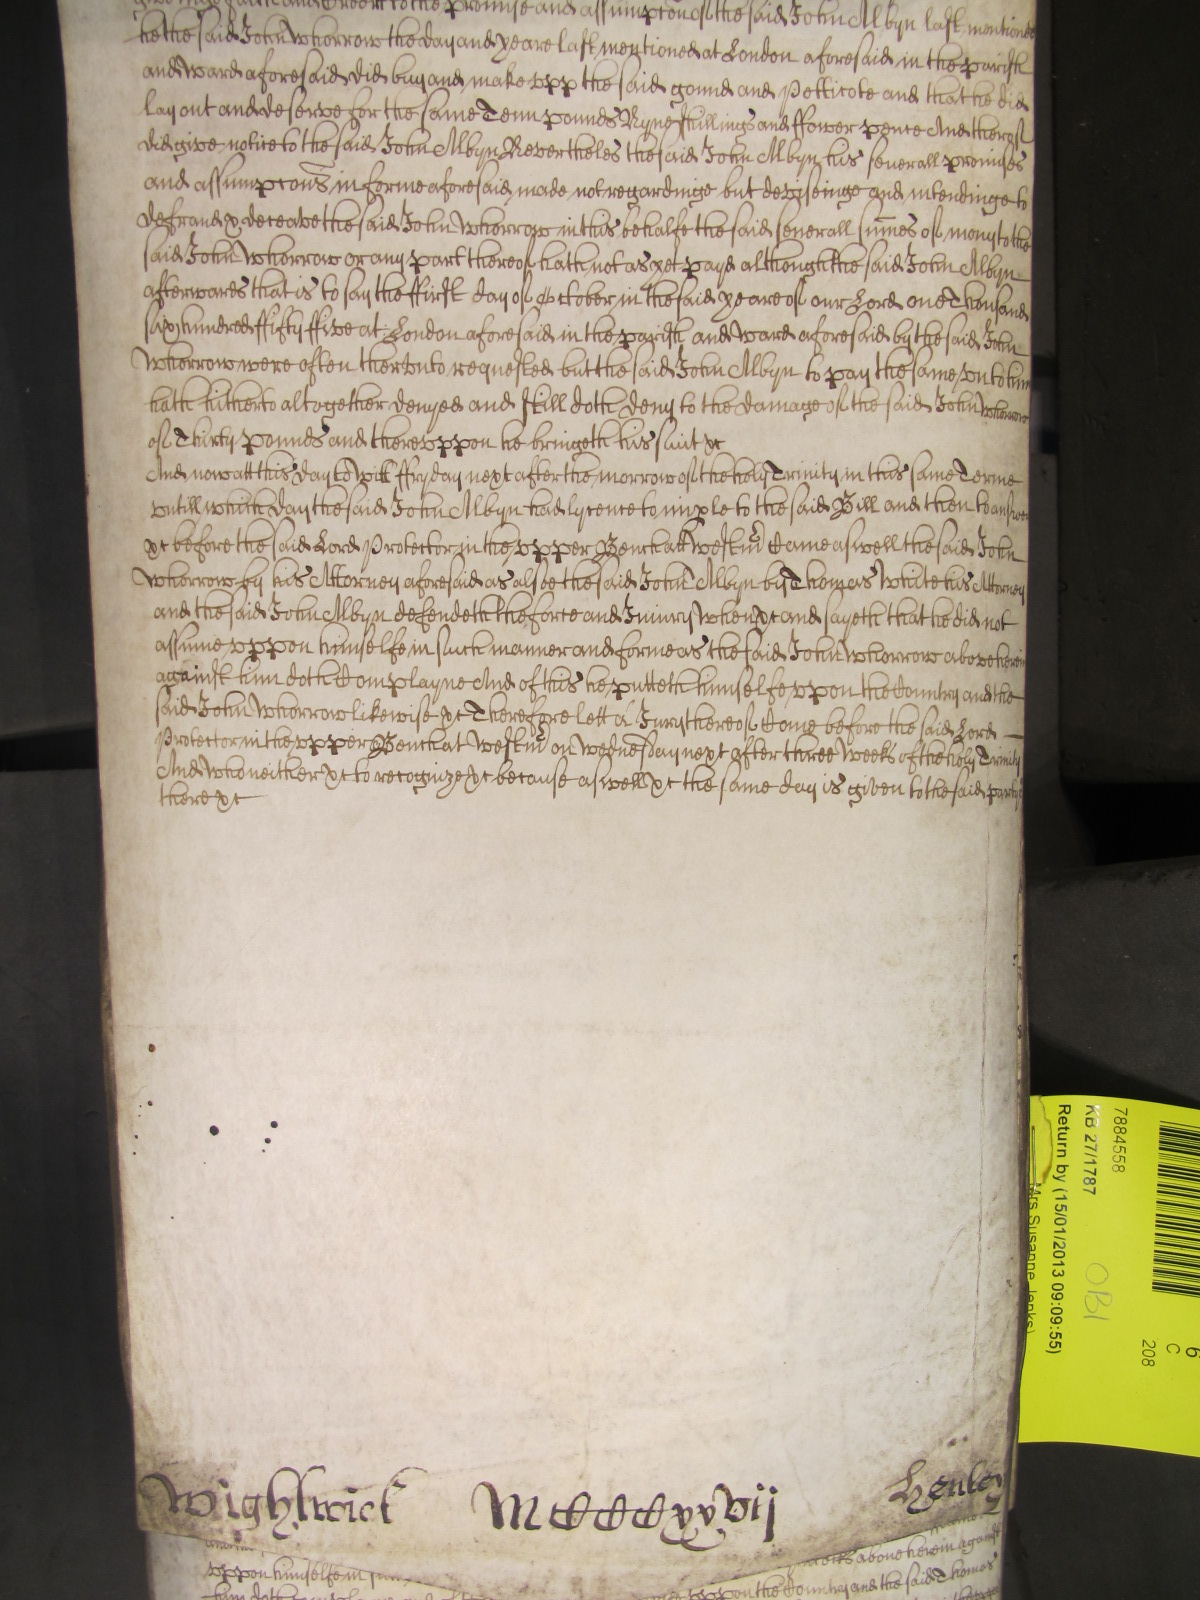 to the promise and assumpcon of the said John Albyn last mentioned
he the said John Whorrow the day and yeare last mentioned at London aforesaid in the parish
and Ward aforesaid did buy and make vpp the said gound and Petticote and that he did
lay out and deserve for the same Tenn pounds Nyne shillings and ffower pence And thereof
did give notice to the said John Albyn Nevertheles the said John Albyn his severall promises
and assumpcons in forme aforesaid made not regardinge but deviseinge and intendinge to
defraud & deceave the said John Whorrow in this behalfe the said severall sumes of mony to the
said John Whorrow or any part thereof hath not as yet payd although the said John Albyn
afterwards that is to say the ffirst day of October in the said yeare of our Lord one Thousand
six hundred ffifty ffive at London aforesaid in the parish and Ward aforesaid by the said John
Whorrow were often therevnto requested but the said John Albyn to pay the same vnto him
hath hitherto altogether denyed and still doth deny to the damage of the said John Whorrow
of Thirty pounds and therevppon he bringeth his suit &c
And now att this day to wit ffryday next after the morrow of the holy Trinity in this same Terme
vntill which day the said John Albyn had lycence to imple to the said Bill and then to answer
&c before the said Lord Protector in the vpper Bench att Westmr Came aswell the said John
Whorrow by his Attorney aforesaid as alsoe the said John Albyn by Thomas White his Attorney
and the said John Albyn defendeth the force and Iniury when &c and sayeth that he did not
assume vppon himselfe in such manner and forme as the said John Whorrow above herein
against him doth Complayne And of this he putteth himselfe vpon the Country and the
said John Whorrow likewise &c Therefore lett a Iury thereof Come before the said Lord
Protector in the vpper Bench at Westmr on Wednesday next after three Weeks of the holy Trinity
And who neither &c to recognize &c because aswell &c the same day is given to the said partys
there &c
Wightwick MCCCCxxvij Henley
above herein against
vppon himselfe in
vppon the Country and the said Thomas
7884558
KB 27/1787
Return by (15/01/2013 09:09:55)
Mrs Susanne Jenks)
OB1
6
C
208